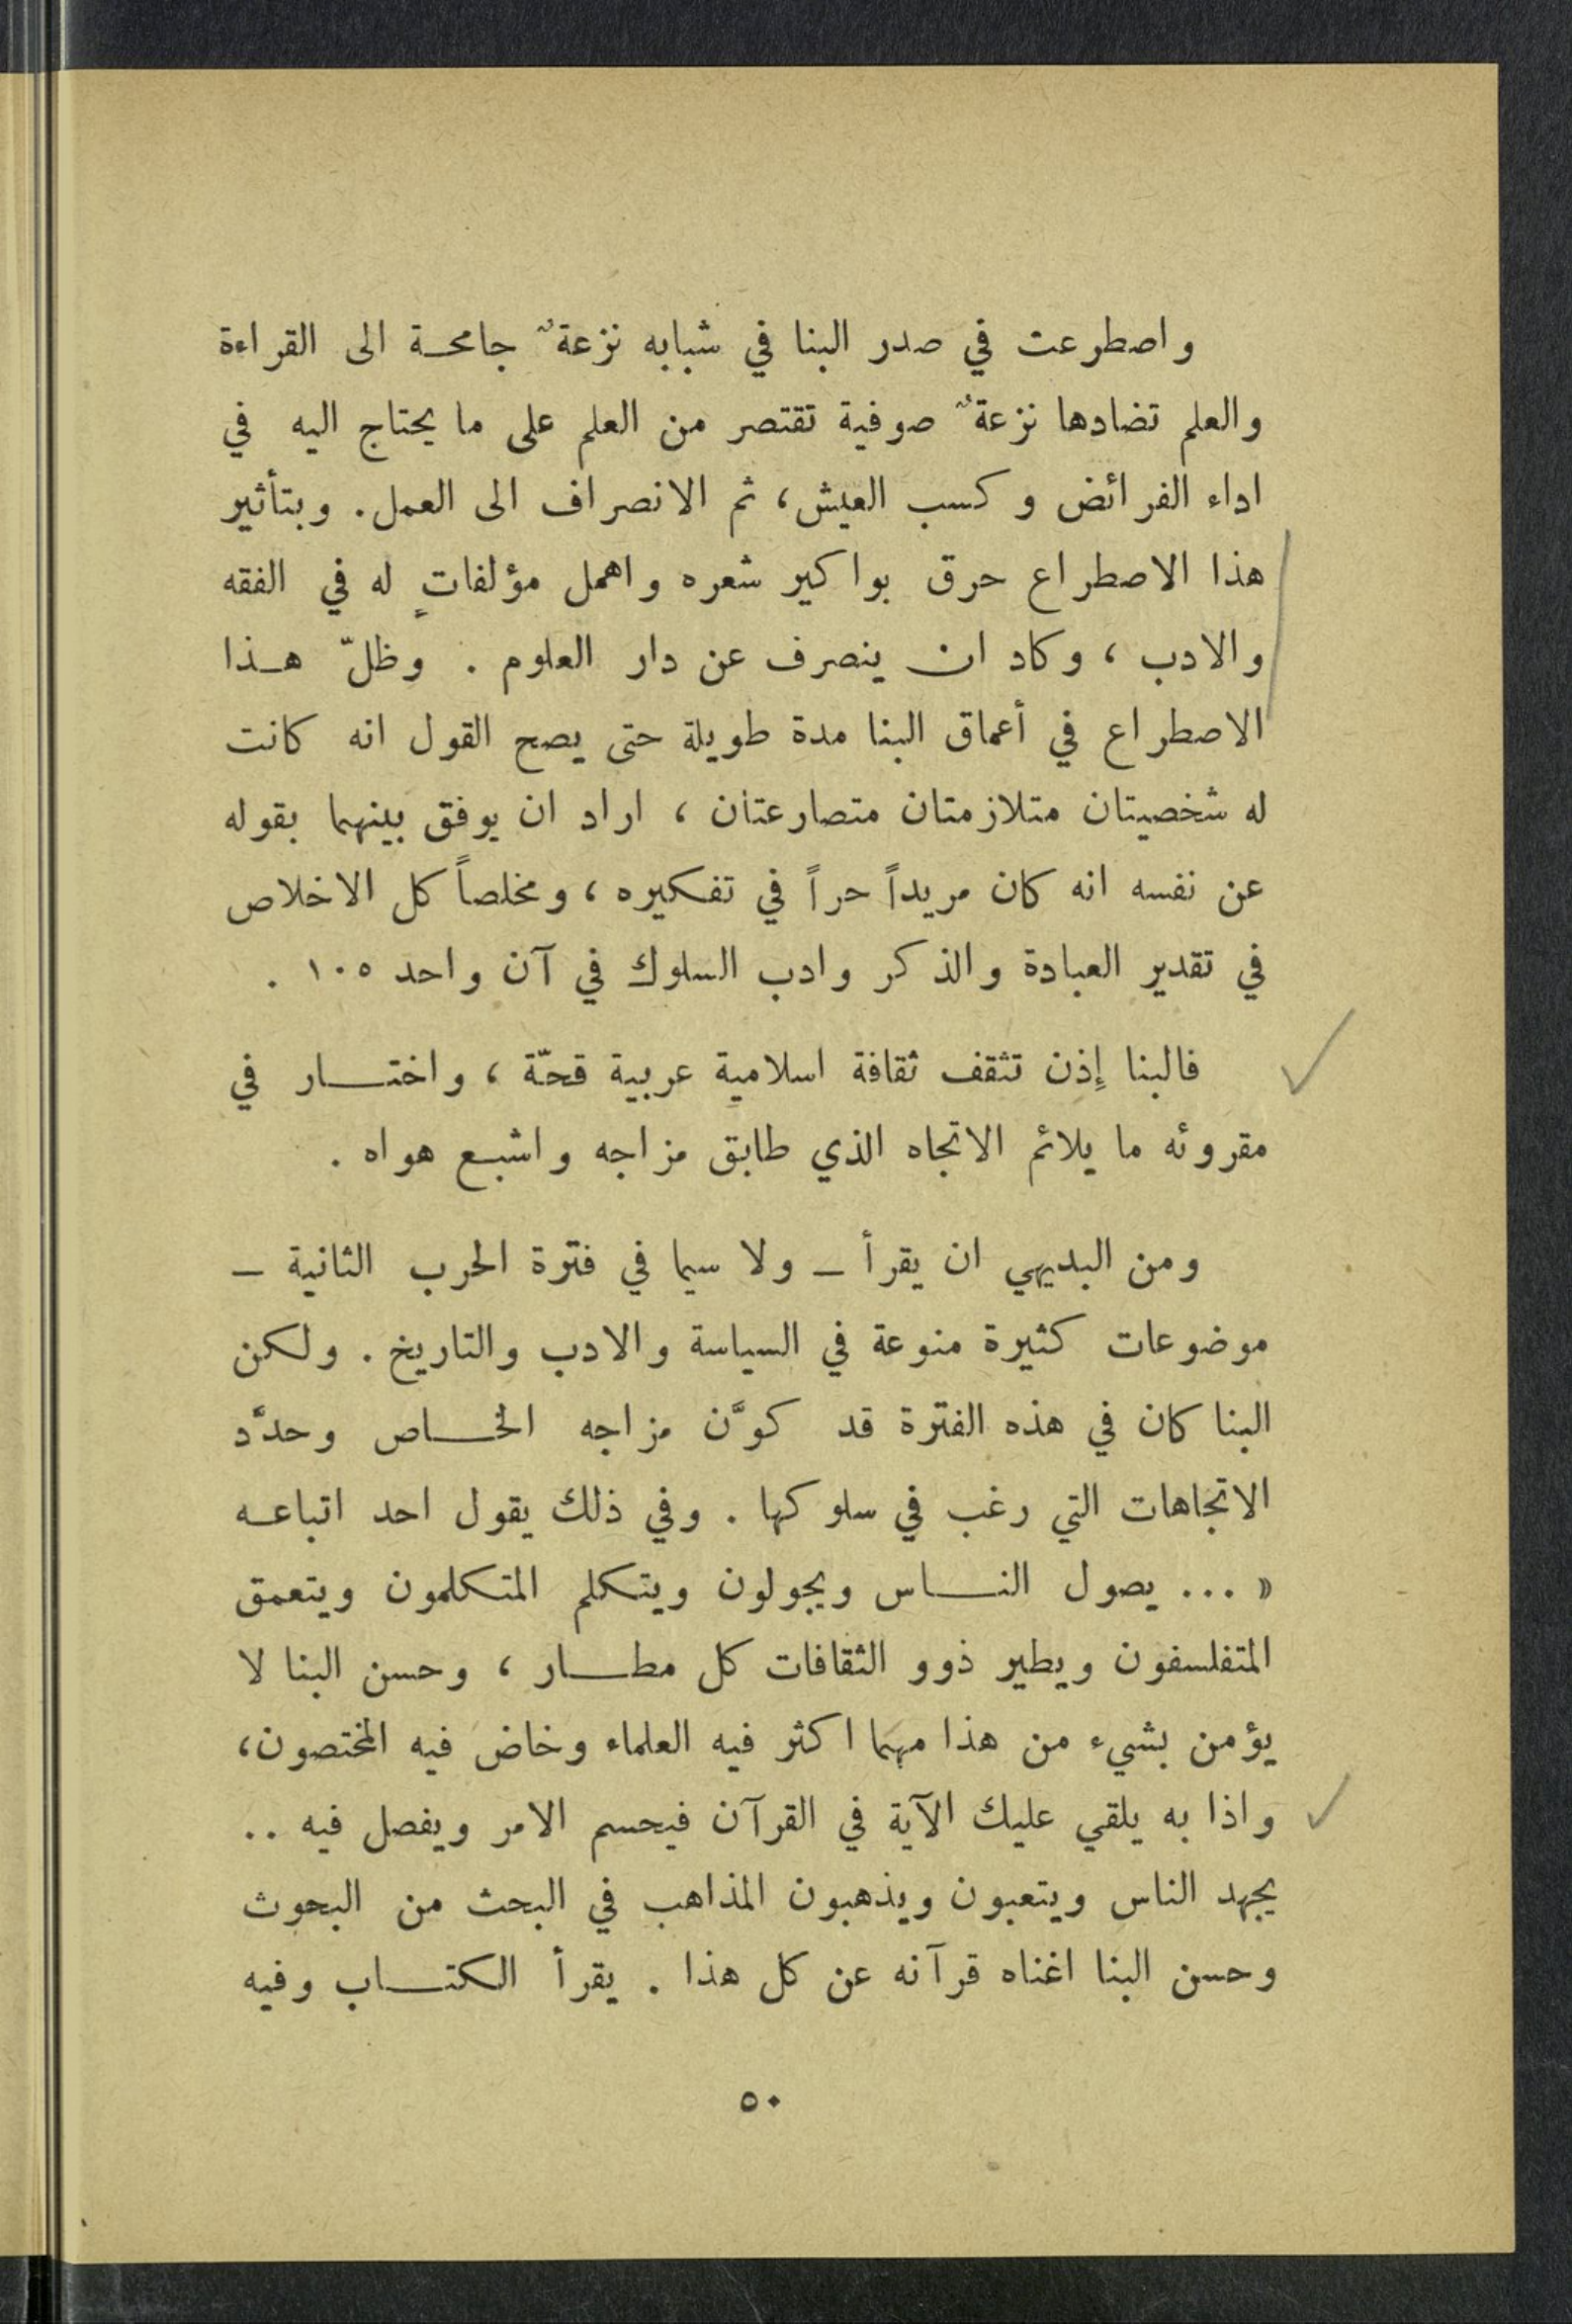 واصطرعت في صدر البنا في شبابه نزعةٌ جامحة الى القراءة
والعلم تضادها نزعةٌ صوفية تقتصر من العلم على ما يحتاج اليه في
اداء الفرائض وكسب العيش، ثم الانصراف الى العمل. وبتأثير
هذا الاصطراع حرق بواكير شعره واهمل مؤلفاتٍ له في الفقه
والادب ، وكاد ان ينصرف عن دار العلوم . وظلّ هذا
الاصطراع في أعماق البنا مدة طويلة حتى يصح القول انه كانت
له شخصيتان متلازمتان متصارعتان ، اراد ان يوفق بينهما بقوله
عن نفسه انه كان مريداً حراً في تفكيره ، ومخلصاً كل الاخلاص
في تقدير العبادة والذكر وادب السلوك في آن واحد ١٠٥ .
فالبنا إِذن تثقف ثقافة اسلامية عربية قحّة ، واختار في
مقروئه ما يلائم الاتجاه الذي طابق مزاجه واشبع هواه .
ومن البديهي ان يقرأ – ولا سيما في فترة الحرب الثانية –
موضوعات كثيرة منوعة في السياسة والادب والتاريخ . ولكن
البنا كان في هذه الفترة قد كوَّن مزاجه الخاص وحدَّد
الاتجاهات التي رغب في سلوكها . وفي ذلك يقول احد اتباعه
« ... يصول الناس ويجولون ويتكلم المتكلمون ويتعمق
المتفلسفون ويطير ذوو الثقافات كل مطار ، وحسن البنا لا
يؤمن بشيء من هذا مهما اكثر فيه العلماء وخاض فيه المختصون،
واذا به يلقي عليك الآية في القرآن فيحسم الامر ويفصل فيه ..
يجهد الناس ويتعبون ويذهبون المذاهب في البحث من البحوث
وحسن البنا اغناه قرآنه عن كل هذا . يقرأ الكتاب وفيه
٥٠